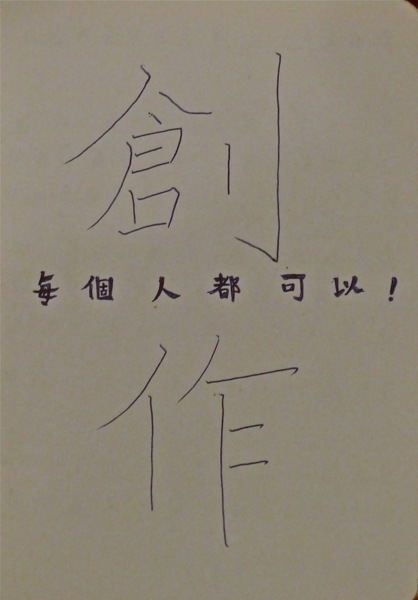 創
每個人都可以!
作